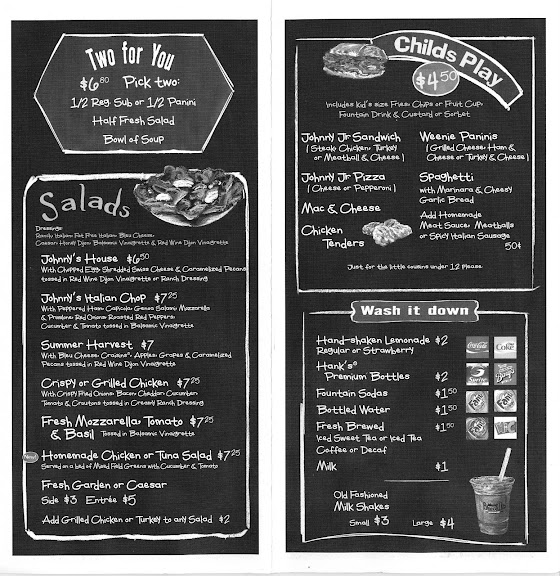 Two for You
$6.80 Pick two:
1/2 Reg. Sub or 1/2 Panini
Half Fresh Salad
Bowl of Soup
Salads
Dressings:
Ranch, Italian, Fat Free Italian, Bleu Cheese,
Caesar, Honey Dijon, Balsamic Vinaigrette & Red Wine Dijon Vinaigrette
Johnny's House $6.50
With Chopped Egg, Shredded Swiss Cheese & Caramelized Pecans
tossed in Red Wine Dijon Vinaigrette or Ranch Dressing
Johnny's Italian Chop $7.25
With Peppered Ham, Capicola, Genoa Salami, Mozzarella
& Provolone, Red Onions, Roasted Red Peppers,
Cucumber & Tomato tossed in Balsamic Vinaigrette
Summer Harvest $7
With Bleu Cheese, Craisins®, Apples, Grapes & Caramelized
Pecans tossed in Red Wine Dijon Vinaigrette
Crispy or Grilled Chicken $7.25
With Crispy Fried Onions, Bacon, Cheddar, Cucumber,
Tomato & Croutons tossed in Creamy Ranch Dressing
Fresh Mozzarella, Tomato $7.25
& Basil Tossed in Balsamic Vinaigrette
New!
Homemade Chicken or Tuna Salad $7.25
Served on a bed of Mixed Field Greens with Cucumber & Tomato
Fresh Garden or Caesar
Side $3 Entrée $5
Add Grilled Chicken or Turkey to any Salad $2
Childs Play
$4.50
Includes kid's size Fries, Chips or Fruit Cup,
Fountain Drink & Custard or Sorbet
Johnny Jr Sandwich
(Steak, Chicken, Turkey
or Meatball & Cheese)
Johnny Jr Pizza
(Cheese or Pepperoni)
Mac & Cheese
Chicken
Tenders
Weenie Paninis
(Grilled Cheese, Ham &
Cheese or Turkey & Cheese)
Spaghetti
with Marinara & Cheesy
Garlic Bread
Add Homemade
Meat Sauce, Meatballs
or Spicy Italian Sausage
50¢
Just for the little cousins under 12 please.
Wash it down
Hand-shaken Lemonade $2
Regular or Strawberry
Hank's®
Premium Bottles $2
Fountain Sodas $1.50
Bottled Water $1.50
Fresh Brewed $1.50
Iced Sweet Tea or Iced Tea
Coffee or Decaf
Milk $1
Old Fashioned
Milk Shakes
Small $3 Large $4
Coca-Cola
Coke
Sprite